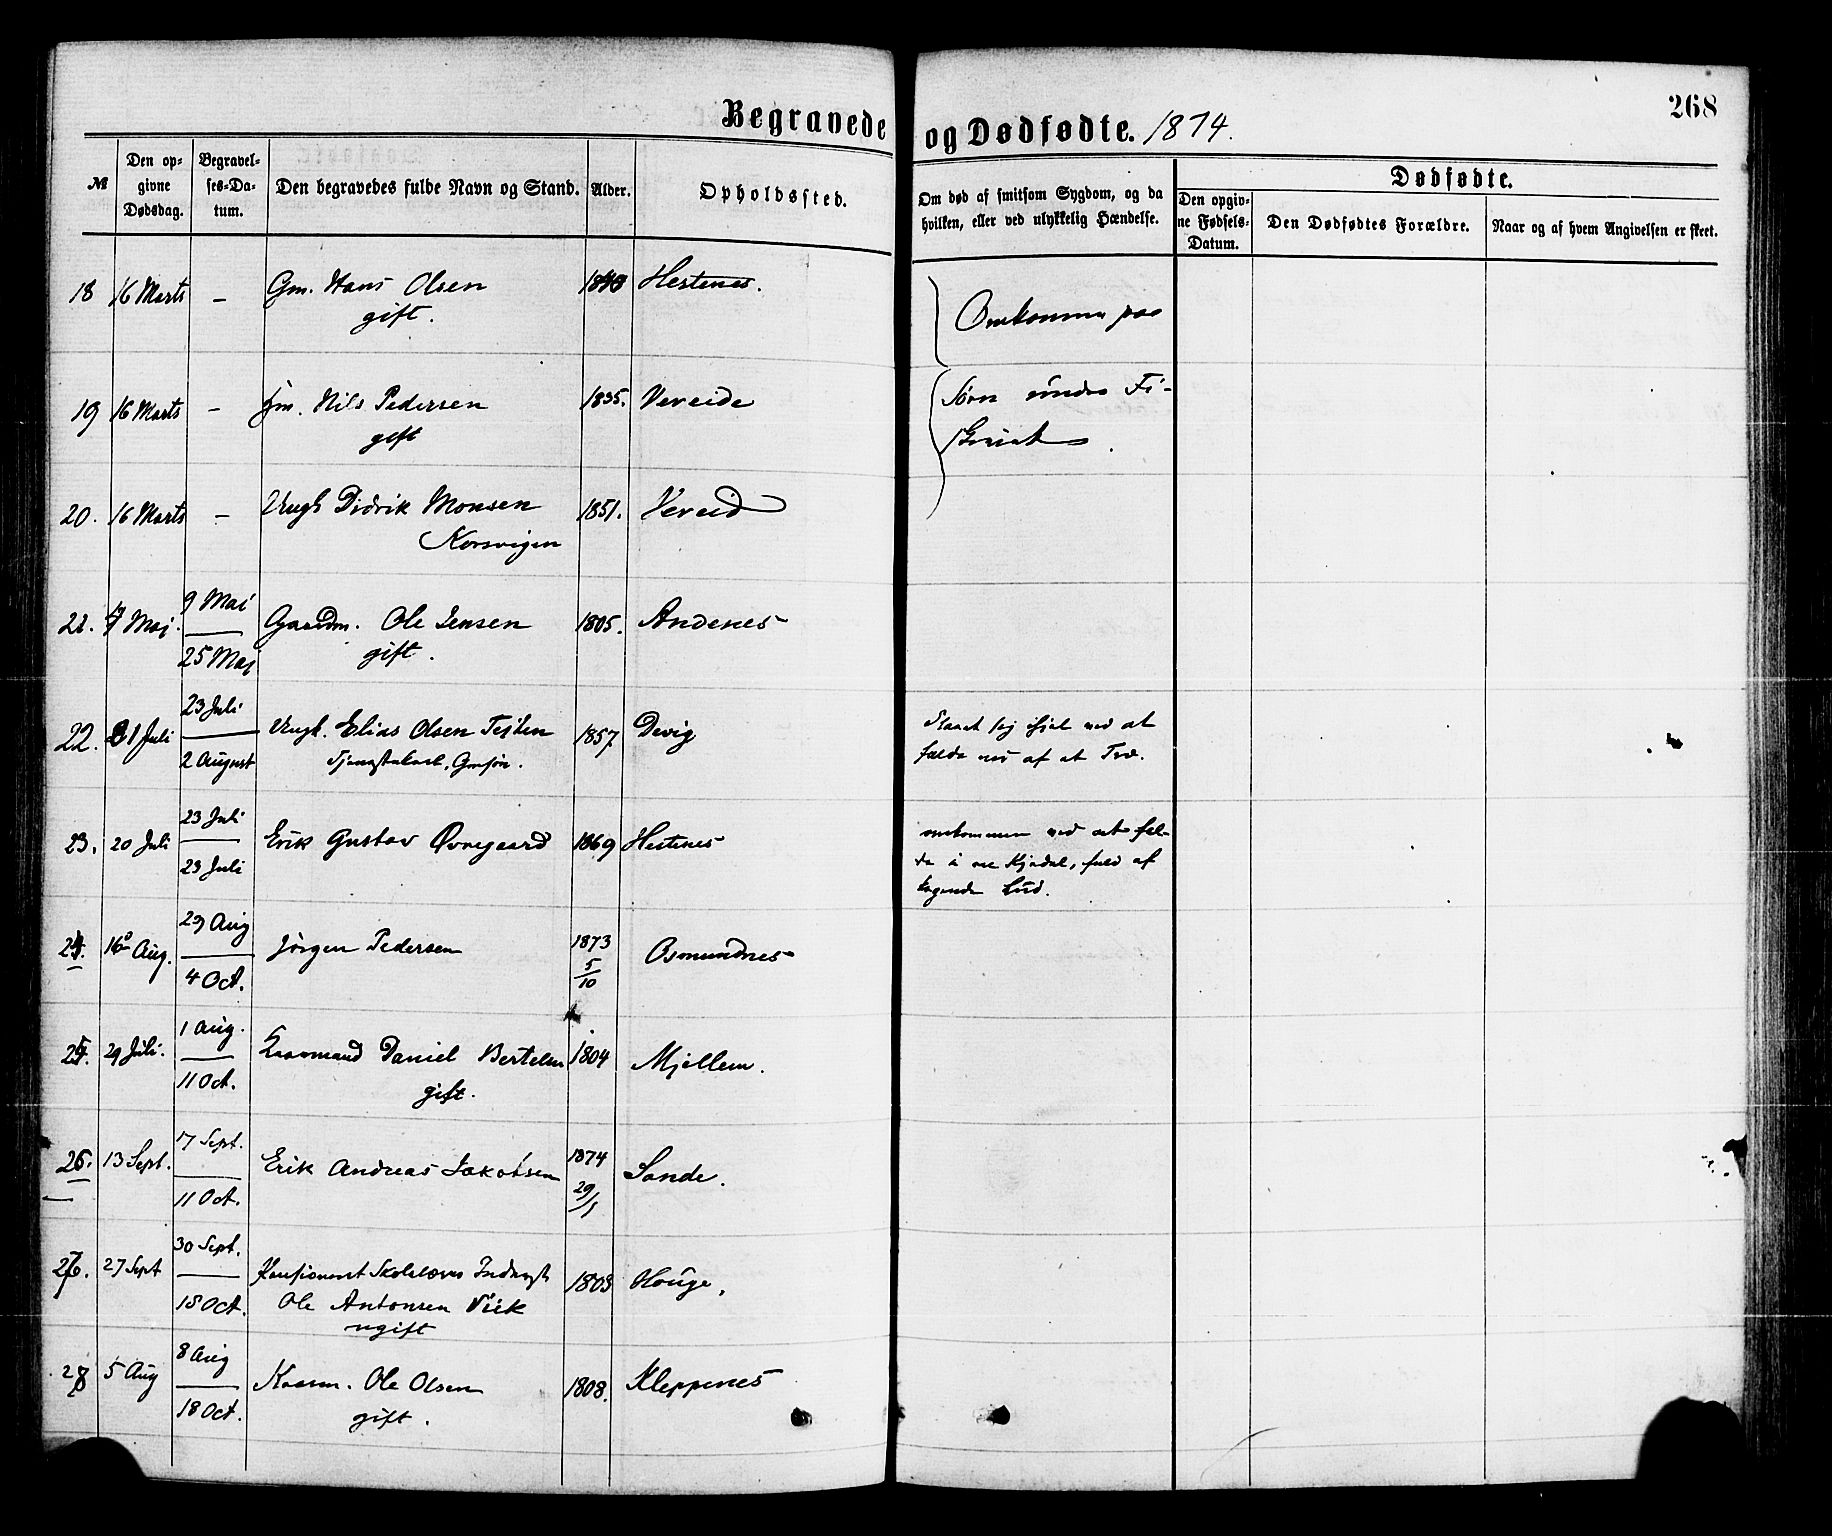 Begravede og Dødfødte. 1874.
268
№
Den op-
givne
Dødsdag.
Begravel-
ses-Da-
tum.
Den begravedes fulde Navn og Stand.
Alder.
Opholdssted.
Om død af smitsom Sygdom, og da
hvilken, eller ved ulykkelig Hændelse.
Dødfødte.
Den opgiv-
ne Fødsels-
Datum.
Den Dødfødtes Forældre.
Naar og af hvem Angivelsen er skeet.
18 16 Marts – Gm. Hans Olsen Hestenes.
gift.
Omkommen paa
19 16 Marts – Gm. Nils Pedersen 1835. Vereide
gift
Søen under Fi-
skeriet.
20. 16 Marts – Ungk Didrik Monsen 1851. Vereid
Korsvigen
21. 7 Maj. 9 Mai
25 Maj
Gaardm. Ole Jensen 1805. Andenes
gift.
22. 21 Juli 23 Juli
2 August
Ungk. Elias Olsen 1857. Devig
Tjenestekarl, Gmsøn.
Slaaet sig ihjel ved at
falde ned af et Træ.
23. 20 Juli 23 Juli
23 Juli
Erik Gustav Øvregaard 1869 Hestenes
omkommen ved at fal-
de i en Kjedel, fuld af
kogende Lud.
24. 16 Aug. 23 Aug
4 Oct.
Jørgen Pedersen 1873
5/10
Osmundnes
25. 29 Juli. 1 Aug.
11 Oct.
Kaarmand Daniel Bertelsen 1804 Mjellem.
gift.
26. 13 Sept. 17 Sept.
11 Oct.
Erik Andreas Jakobsen 1874
29/1
Sande.
27. 27 Sept 30 Sept.
18 Oct.
Pensioneret Skolelærer Inderst
Ole Antonsen Viik
ugift
1803 Houge.
28 5 Aug 8 Aug
18 Oct.
Kaarm. Ole Olsen 1808. Kleppenes
gift.